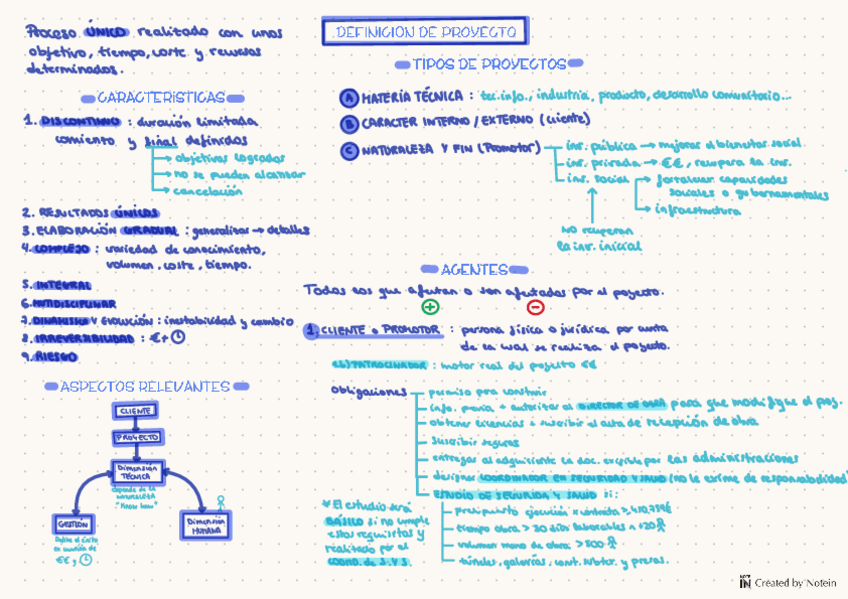 Proceso ÚNICO realitado con unos
objetivo, tiempo, coste y recursos
determinados.
CARACTERÍSTICAS
1. DISCONTINUO : duración limitada
comiento y final definidos
→ objetivos logrados
→ no se pueden alcanzar
→ cancelación
2. RESULTADOS ÚNICOS
3. ELABORACIÓN GRADUAL : generalizar → detalles
4. COMPLEJO : variedad de conocimiento,
volumen, coste, tiempo.
5. INTEGRAL
6. MULTIDISCIPLINAR
7. DINAMISMO Y EVOLUCIÓN : inestabilidad y cambio
8. IRREVERSIBILIDAD : € +
9. RIESGO
ASPECTOS RELEVANTES
CLIENTE
PROYECTO
DIMENSIÓN
TÉCNICA
depende de la
naturaleza
"Know how"
GESTIÓN
Define el éxito
en función de
€€,
DIMENSIÓN
HUMANA
DEFINICION DE PROYECTO
TIPOS DE PROYECTOS
A MATERÍA TÉCNICA : tec.info., industria, producto, desarrollo comunitario...
B CARACTER INTERNO / EXTERNO (cliente)
C NATURALEZA Y FIN (Promotor)
inv. pública → mejorar el bienestar social
inv. privada → €€, recupera la inv.
inv. social → fortalecer capacidades
sociales o gubernamentales
→ infraestructura
no recuperan
la inv. inicial
AGENTES
Todos los que afectan o son afectados por el proyecto.
1. CLIENTE o PROMOTOR : persona física o jurídica por cuenta
de la cual se realiza el proyecto.
PATROCINADOR : motor real del proyecto €€
obligaciones
permiso para construir
info. previa + autorizar al DIRECTOR DE OBRA para que modifique el proy.
obtener licencias + suscribir el acta de recepción de obra
suscribir seguros
entregar al adquiriente la doc. exigible por las administraciones
designar COORDINADOR EN SEGURIDAD Y SALUD (no le exime de responsabilidad)
ESTUDIO DE SEGURIDAD Y SALUD si :
presupuesto ejecución x contrata >
tiempo obra > 30 días laborables o +20
volumen mano de obra > 500
túneles, galerías, cont. subter. y presas.
* El estudio será
BÁSICO si no cumple
estos requisitos y
realizado por el
COORD. de S.Y S.
Created by Notein